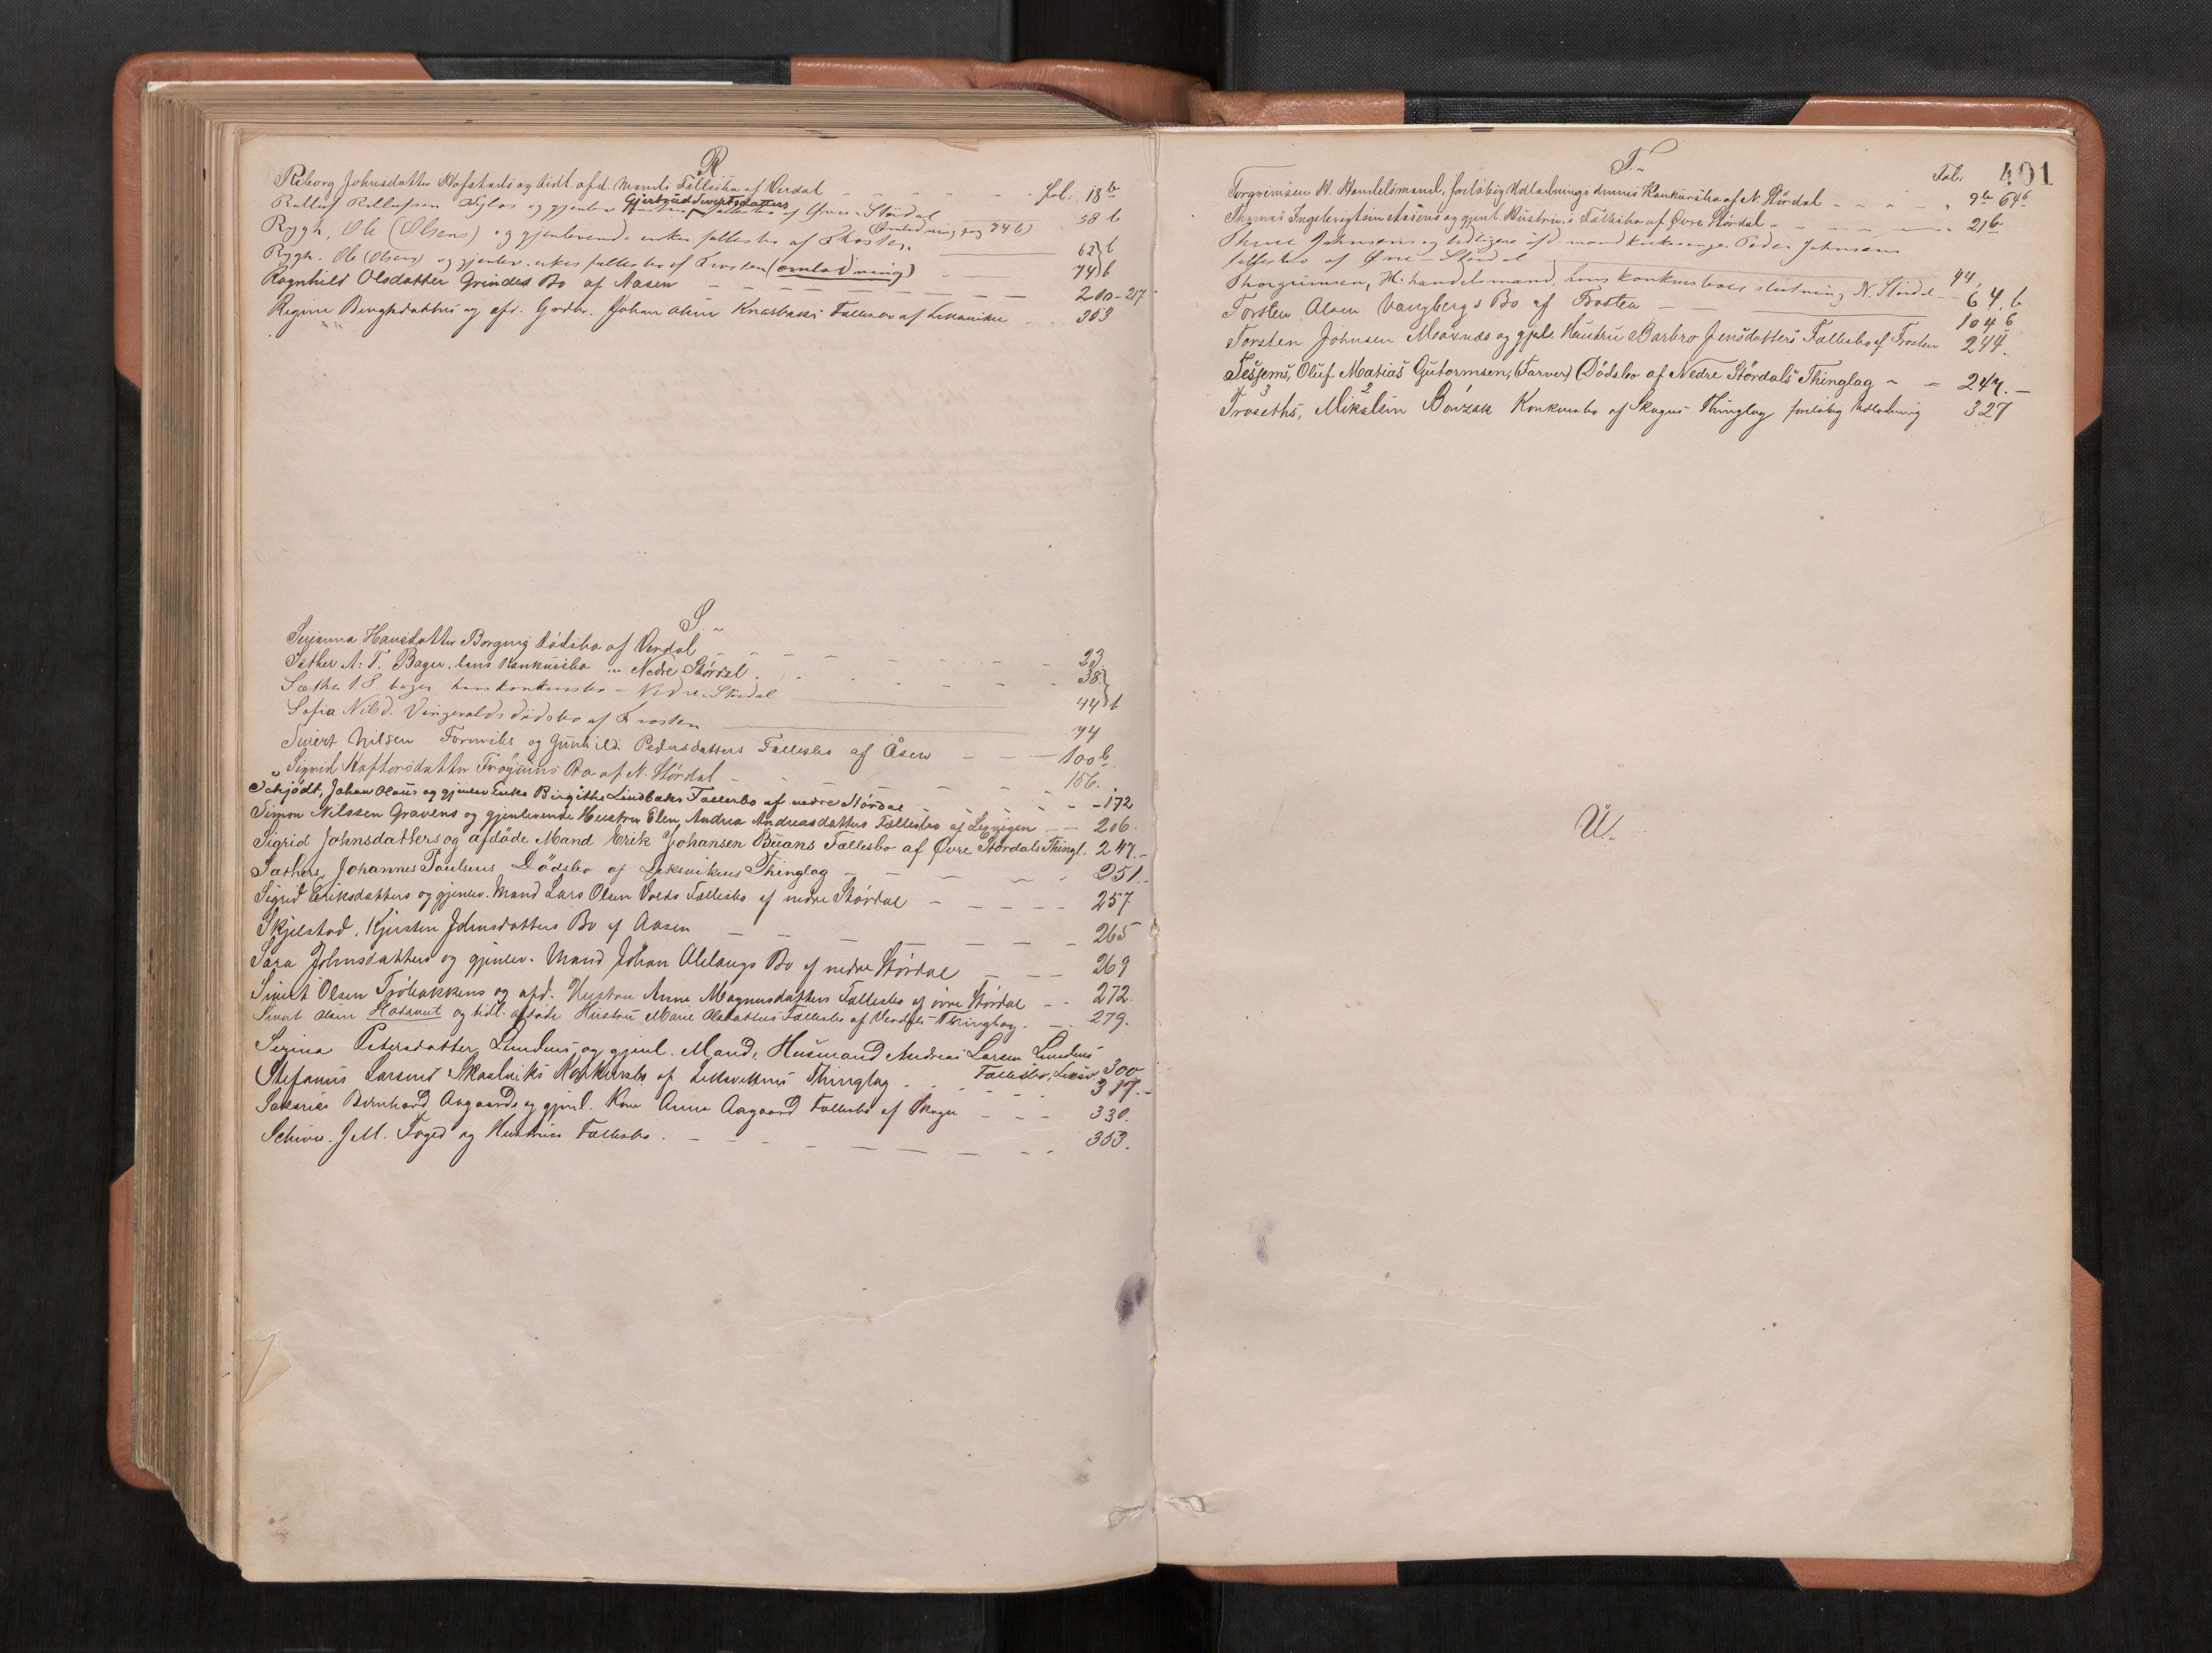 R
Riborg Johnsdatter Hofstads og tidl. afd. Mands Fællesbo af Verdal Fol. 18b
Gjertrud Sivertsdatters
Rollof Rollofsen og gjenlev. Hustru fællesbo af Øvre Stördal 58 b
(Omlodning pag 74 b)
Rygh, Ole (Olsens) og gjenlevende enkes fællesbo af Frosten 62 b
Rygh. Ole (Olsens) og gjenlev. enkes fællesbo af Frosten (omlodning) 74 b
Ragnhild Olsdatter Grindes Bo af Aasen 210-217
Regine Bengtsdatters og afd. Gaardbr. Johan Knarbaks Fællesbo af Leksviken 303
S.
Serianna Hansdatter Borgens dödsbo af Verdal 23
Sæther A. T. Bager, hans Konkursbo Nedre Stördal 38
Sæther bager hans konkursbo – Nedre Stördal 44 b
Sofia Nilsd. Vingevolds dödsbo af Frosten 74
Sivert Nilsen Formviks og Gunhild Pedersdatters Fællesbo af Åsen 100b
Sigrid Haftorsdatter Fröysens Bo af N. Stördal 156.
Schjödt, Johan Olaus og gjenlev Enke Birgithe Lindbaks Fællesbo af nedre Stördal 172
Simon Nilssen Gravens og gjenlevende Hustru Elen Andrea Andreasdatters Fællesbo af Lexvigen 206.
Sigrid Johnsdatters og afdöde Mand Erik Johansen Buans Fællesbo af Øvre Stördals Thingl. 247.-
Sæthers, Johannes Paulsens Dödsbo af Leksvikens Thinglag 251.-
Sigrid Eriksdatters og gjenlev. Mand Lars Olsen Volds Fællesbo af nedre Stördal 257
Skjelstad, Kjersten Johnsdatters Bo af Aasen 265
Sara Johnsdatters og gjenlev. Mand Johan Alelangs Bo af nedre Stördal 269
Sivert Olsen Tröbakkens og afd. Hustru Anne Magnusdatters Fællesbo af övre Stördal 272.
Sivert Olsen og tidl. afdöde Hustru Marie Olsdatters Fællesbo af Verdals Thinglag. 279.
Serina Petersdatter Lundens og gjenl. Mand, Husmand Andreas Larsen Lundens
Fællesbo, Leksv 300
Stefanus Larsens Skaalviks Konkursbo af Leksvikens Thinglag 317.-
Sakarias Bernhard Aagaards og gjenl. Kone Anna Aagaard Fællesbo af Skogn 330.
Schive. J. M. Foged og Hustrues Fællesbo. 353.
T.
Fol. 401
Torgrimsen H. Handelsmand, foreløbig Udlodnings i hans Konkursbo af N. Stördal 9b 64b
Thomas Ingebrigtsen og gjenl. Hustrues Fællesbo af Øvre Stördal 21b
Johnsens og tidligere afd. mand kirkesanger Peder Johnsens
fællesbo af Øvre – Stördal 44,
Thorgrimsen, H. handelsmand, hans konkursboes slutning N. Stördal 64. b
Torsten Olsen Vangbergs Bo af Frosten 104 b
Torsten Johnsen Moxnæs og gjel. Hustru Barbro Jensdatters Fællesbo af Frosten 244.
Tessems, Oluf Matias Gutormsen, (Farver) Dödsbo af Nedre Stördals Thinglag 247.-
Troseths, Mikalsen Konkursbo af Skogns Thinglag foreløbig Udlodning 327
U.